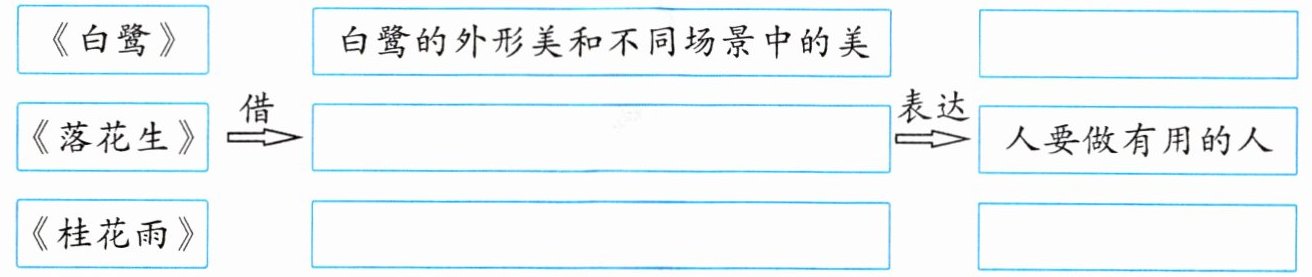 《白鹭》 白鹭的外形美和不同场景中的美
《落花生》 借 表达 人要做有用的人
《桂花雨》